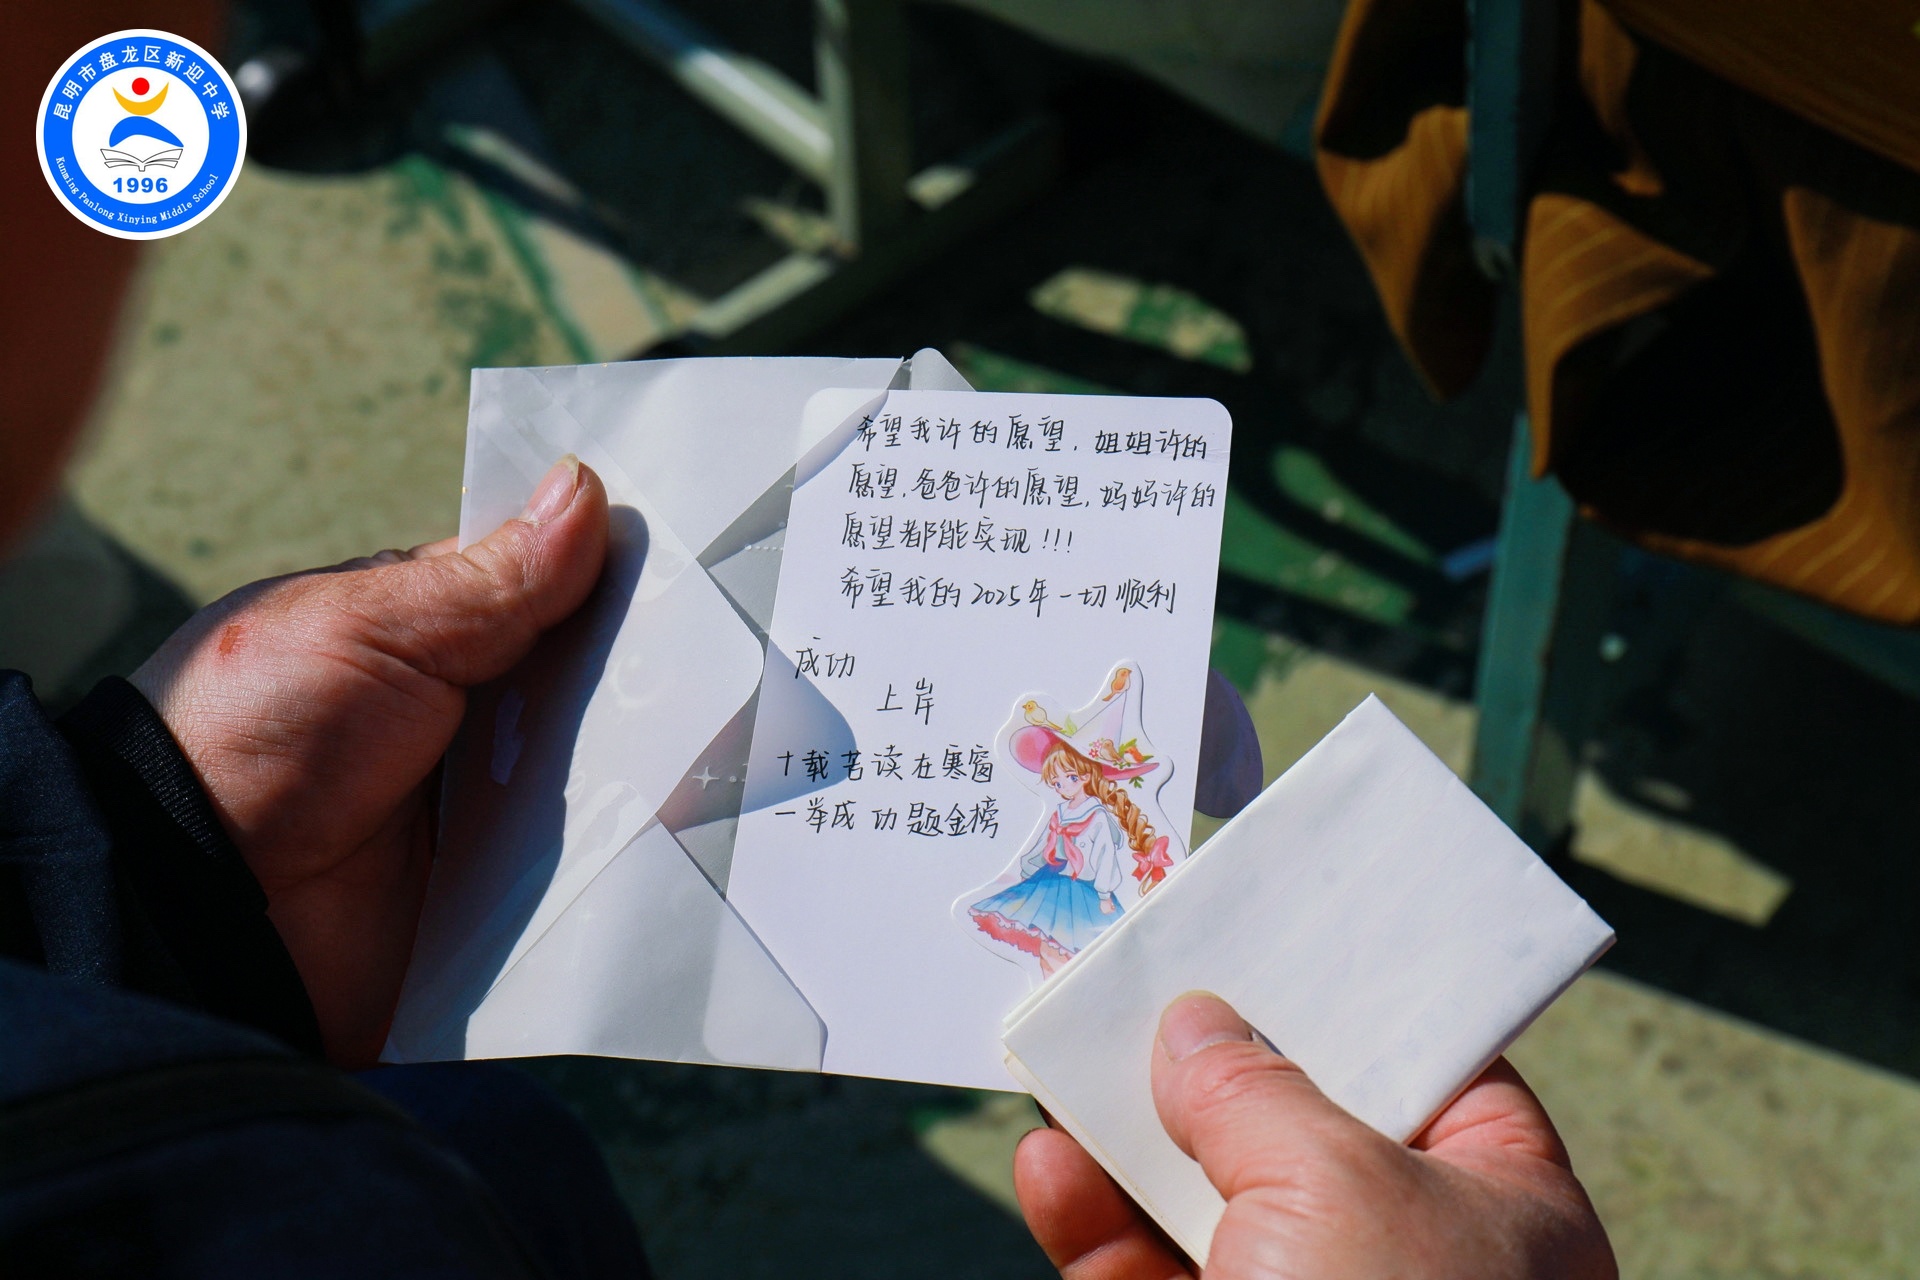 昆明市盘龙区新迎中学
1996
Kunming Panlong Xinying Middle School
希望我许的愿望，姐姐许的
愿望，爸爸许的愿望，妈妈许的
愿望都能实现！！！
希望我的2025年一切顺利
成功
上岸
十载苦读在寒窗
一举成功题金榜